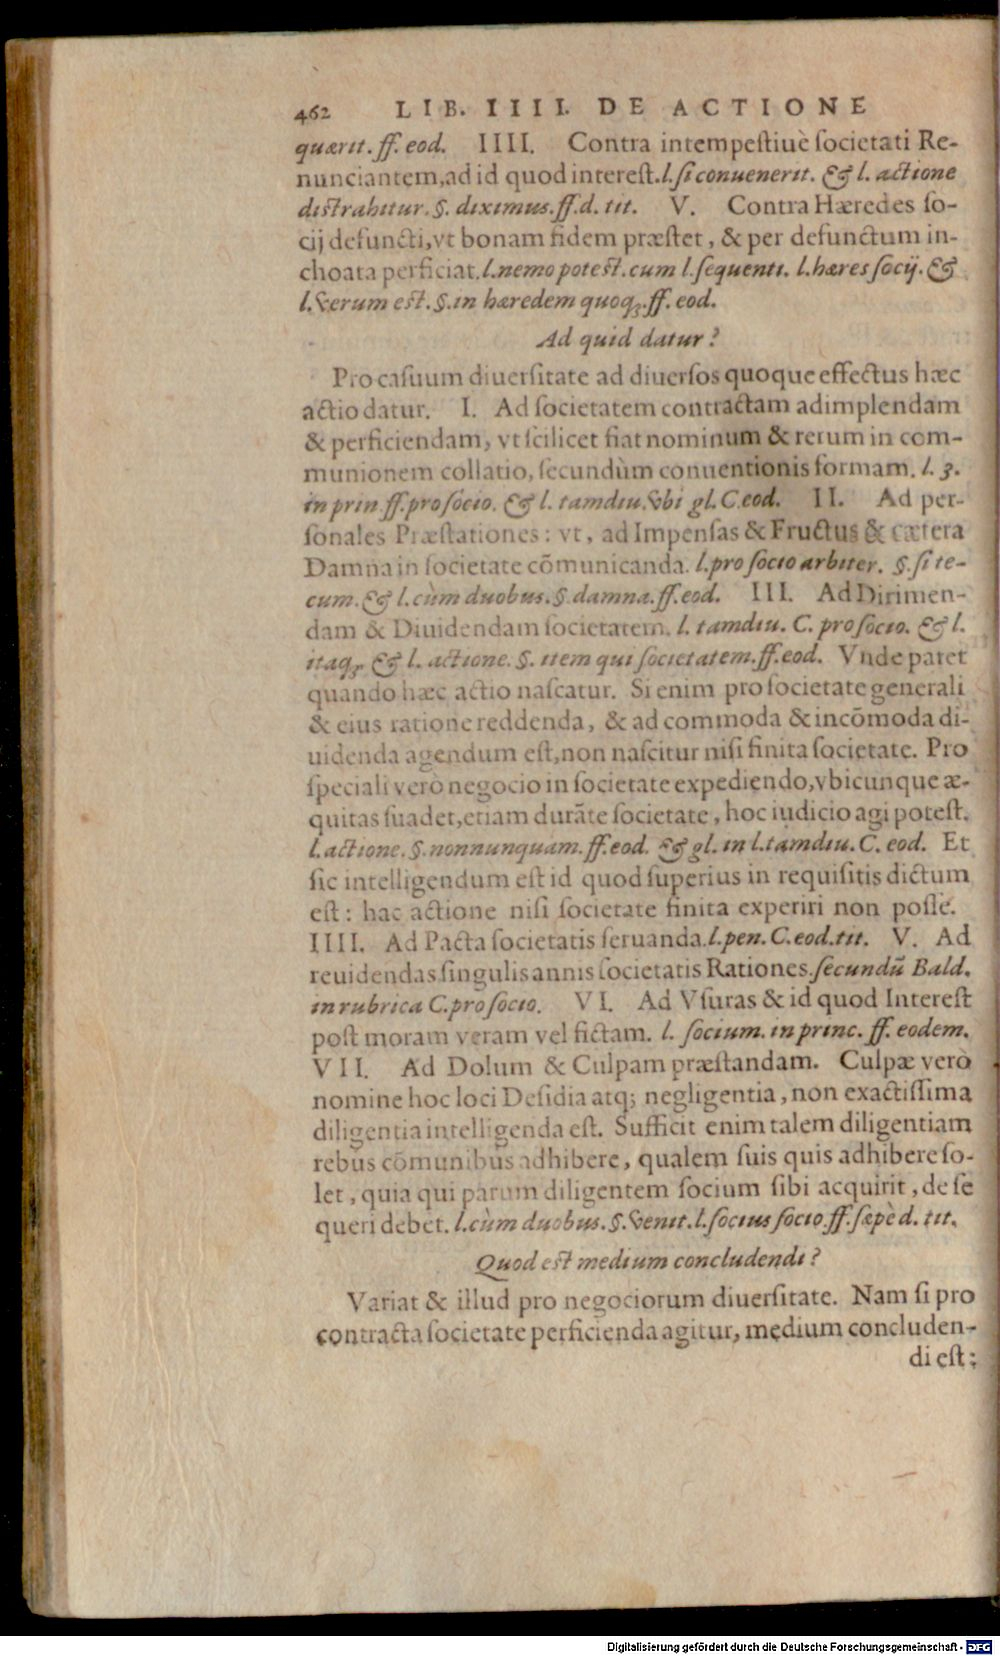 462 LIB. IIII. DE ACTIONE
quærit. ff. eod. IIII. Contra intempeſtiuè ſocietati Re-
nunciantem, ad id quod intereſt. l. ſi conuenerit. & l. actione
diſtrahitur. §. diximus. ff. d. tit. V. Contra Hæredes ſo-
cij defuncti, vt bonam fidem præſtet, & per defunctum in-
choata perficiat. l. nemo poteſt. cum l. ſequenti. l. hæres ſocij. &
l. verum eſt. §. in hæredem quoq;. ff. eod.
Ad quid datur?
Pro caſuum diuerſitate ad diuerſos quoque effectus hæc
actio datur. I. Ad ſocietatem contractam adimplendam
& perficiendam, vt ſcilicet fiat nominum & rerum in com-
munionem collatio, ſecundùm conuentionis formam. l. 3.
in prin. ff. pro ſocio. & l. tamdiu. vbi gl. C. eod. II. Ad per-
ſonales Præſtationes: vt, ad Impenſas & Fructus & cætera
Damna in ſocietate cõmunicanda. l. pro ſocio arbiter. §. ſi te-
cum. & l. cùm duobus. §. damna. ff. eod. III. Ad Dirimen-
dam & Diuidendam ſocietatem. l. tamdiu. C. pro ſocio. & l.
itaq;. & l. actione. §. item qui ſocietatem. ff. eod. Vnde patet
quando hæc actio naſcatur. Si enim pro ſocietate generali
& eius ratione reddenda, & ad commoda & incõmoda di-
uidenda agendum eſt, non naſcitur niſi finita ſocietate. Pro
ſpeciali verò negocio in ſocietate expediendo, vbicunque æ-
quitas ſuadet, etiam durãte ſocietate, hoc iudicio agi poteſt.
l. actione. §. nonnunquam. ff. eod. & gl. in l. tamdiu. C. eod. Et
ſic intelligendum eſt id quod ſuperius in requiſitis dictum
eſt: hac actione niſi ſocietate finita experiri non poſſe.
IIII. Ad Pacta ſocietatis ſeruanda. l. pen. C. eod. tit. V. Ad
reuidendas ſingulis annis ſocietatis Rationes. ſecundũ Bald.
in rubrica C. pro ſocio. VI. Ad Vſuras & id quod Intereſt
poſt moram veram vel fictam. l. ſocium. in princ. ff. eodem.
VII. Ad Dolum & Culpam præſtandam. Culpæ verò
nomine hoc loci Deſidia atq; negligentia, non exactiſſima
diligentia intelligenda eſt. Sufficit enim talem diligentiam
rebus cõmunibus adhibere, qualem ſuis quis adhibere ſo-
let, quia qui parum diligentem ſocium ſibi acquirit, de ſe
queri debet. l. cùm duobus. §. venit. l. ſocius ſocio. ff. ſæpè d. tit.
Quod eſt medium concludendi?
Variat & illud pro negociorum diuerſitate. Nam ſi pro
contracta ſocietate perficienda agitur, medium concluden-
di eſt:
Digitalisierung gefördert durch die Deutsche Forschungsgemeinschaft - DFG